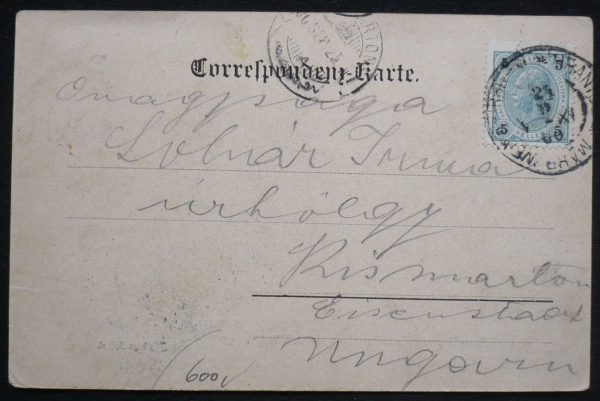 Correspondenz-Karte.
5 5
HELLER
Őnagysága
Solnár Irma
úrhölgy
Kismarton
Eisenstadt
Ungarn
600